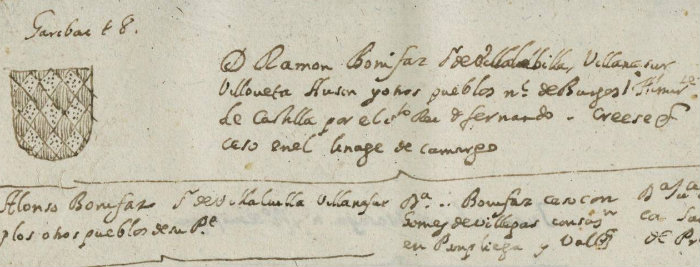 Garibai t 8.
D Ramon Bonifaz Sr de Villalbilla, Villanasur
Villoveta Husin y otros pueblos nl de Burgos 1º Almir
de Castilla por el sto Rei D fernando - Creese q
caso en el linage de camargo
Alonso Bonifaz Sr de Villalvilla Villanasur
y los otros pueblos de su Pe
Da .. Bonifaz caso con
Gomez de Villegas
en Pampliega y Vall
Da Ju
ca
de P